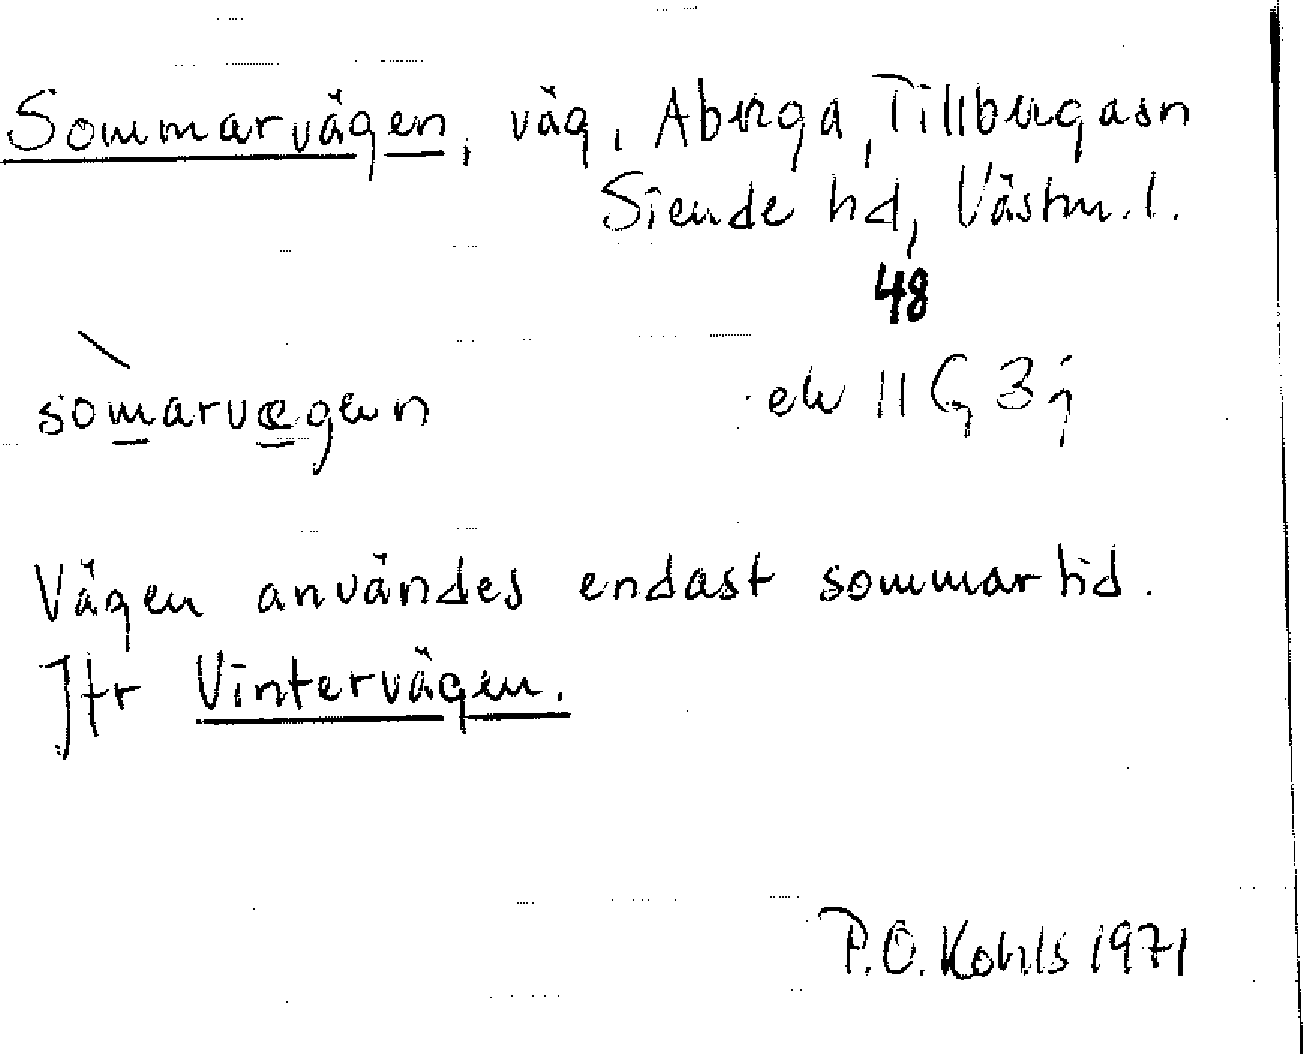 Sommarvägen, väg, Aberga, Tillbergasn
Siende hd, Västm. l.
48
sòmarvægen
ek 11 G 3 j
Vägen användes endast sommartid.
Jfr Vintervägen.
P.O. Kohls 1971